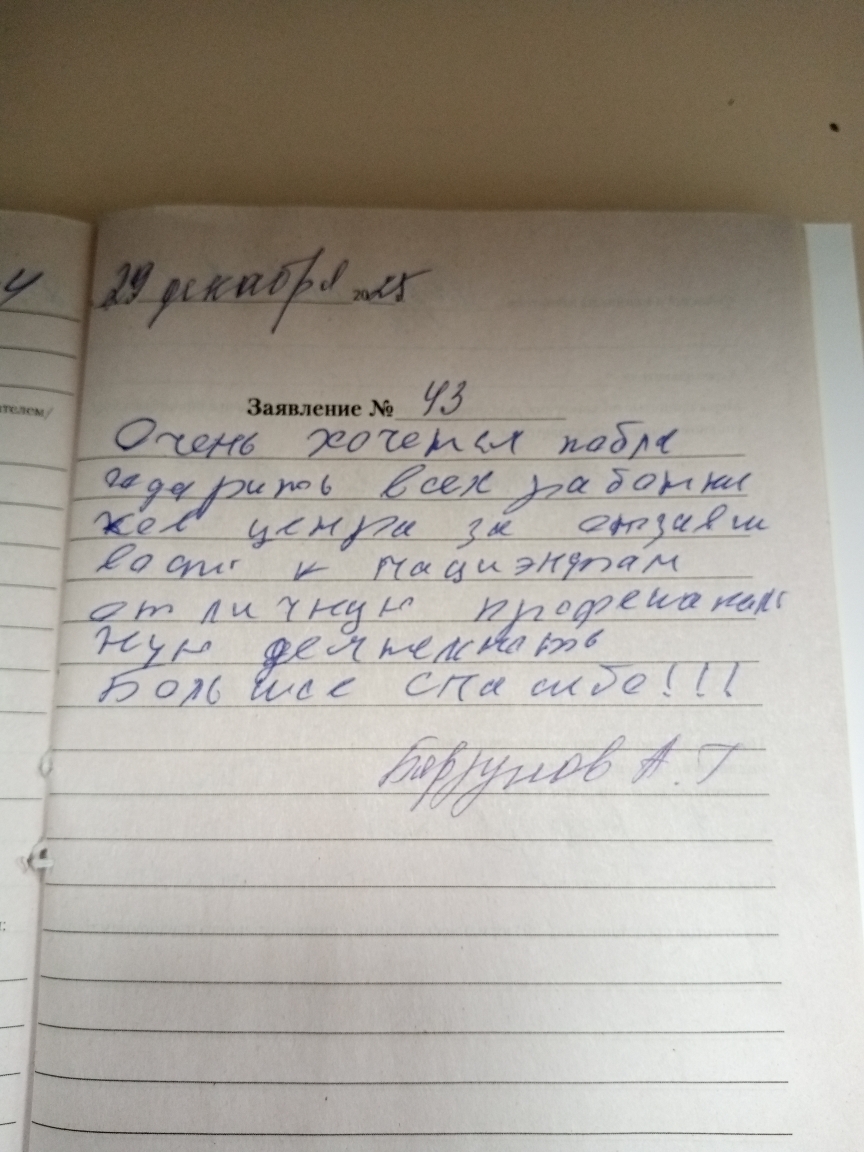 29 декабря 2025
Заявление № 43
ателем/
Очень хочется побла
гадарить всех работни
ков центра за отзавчи
вость к пациэнтам
отличную професианаль
ную деятельность
Большое спасибо!!!
А.Г